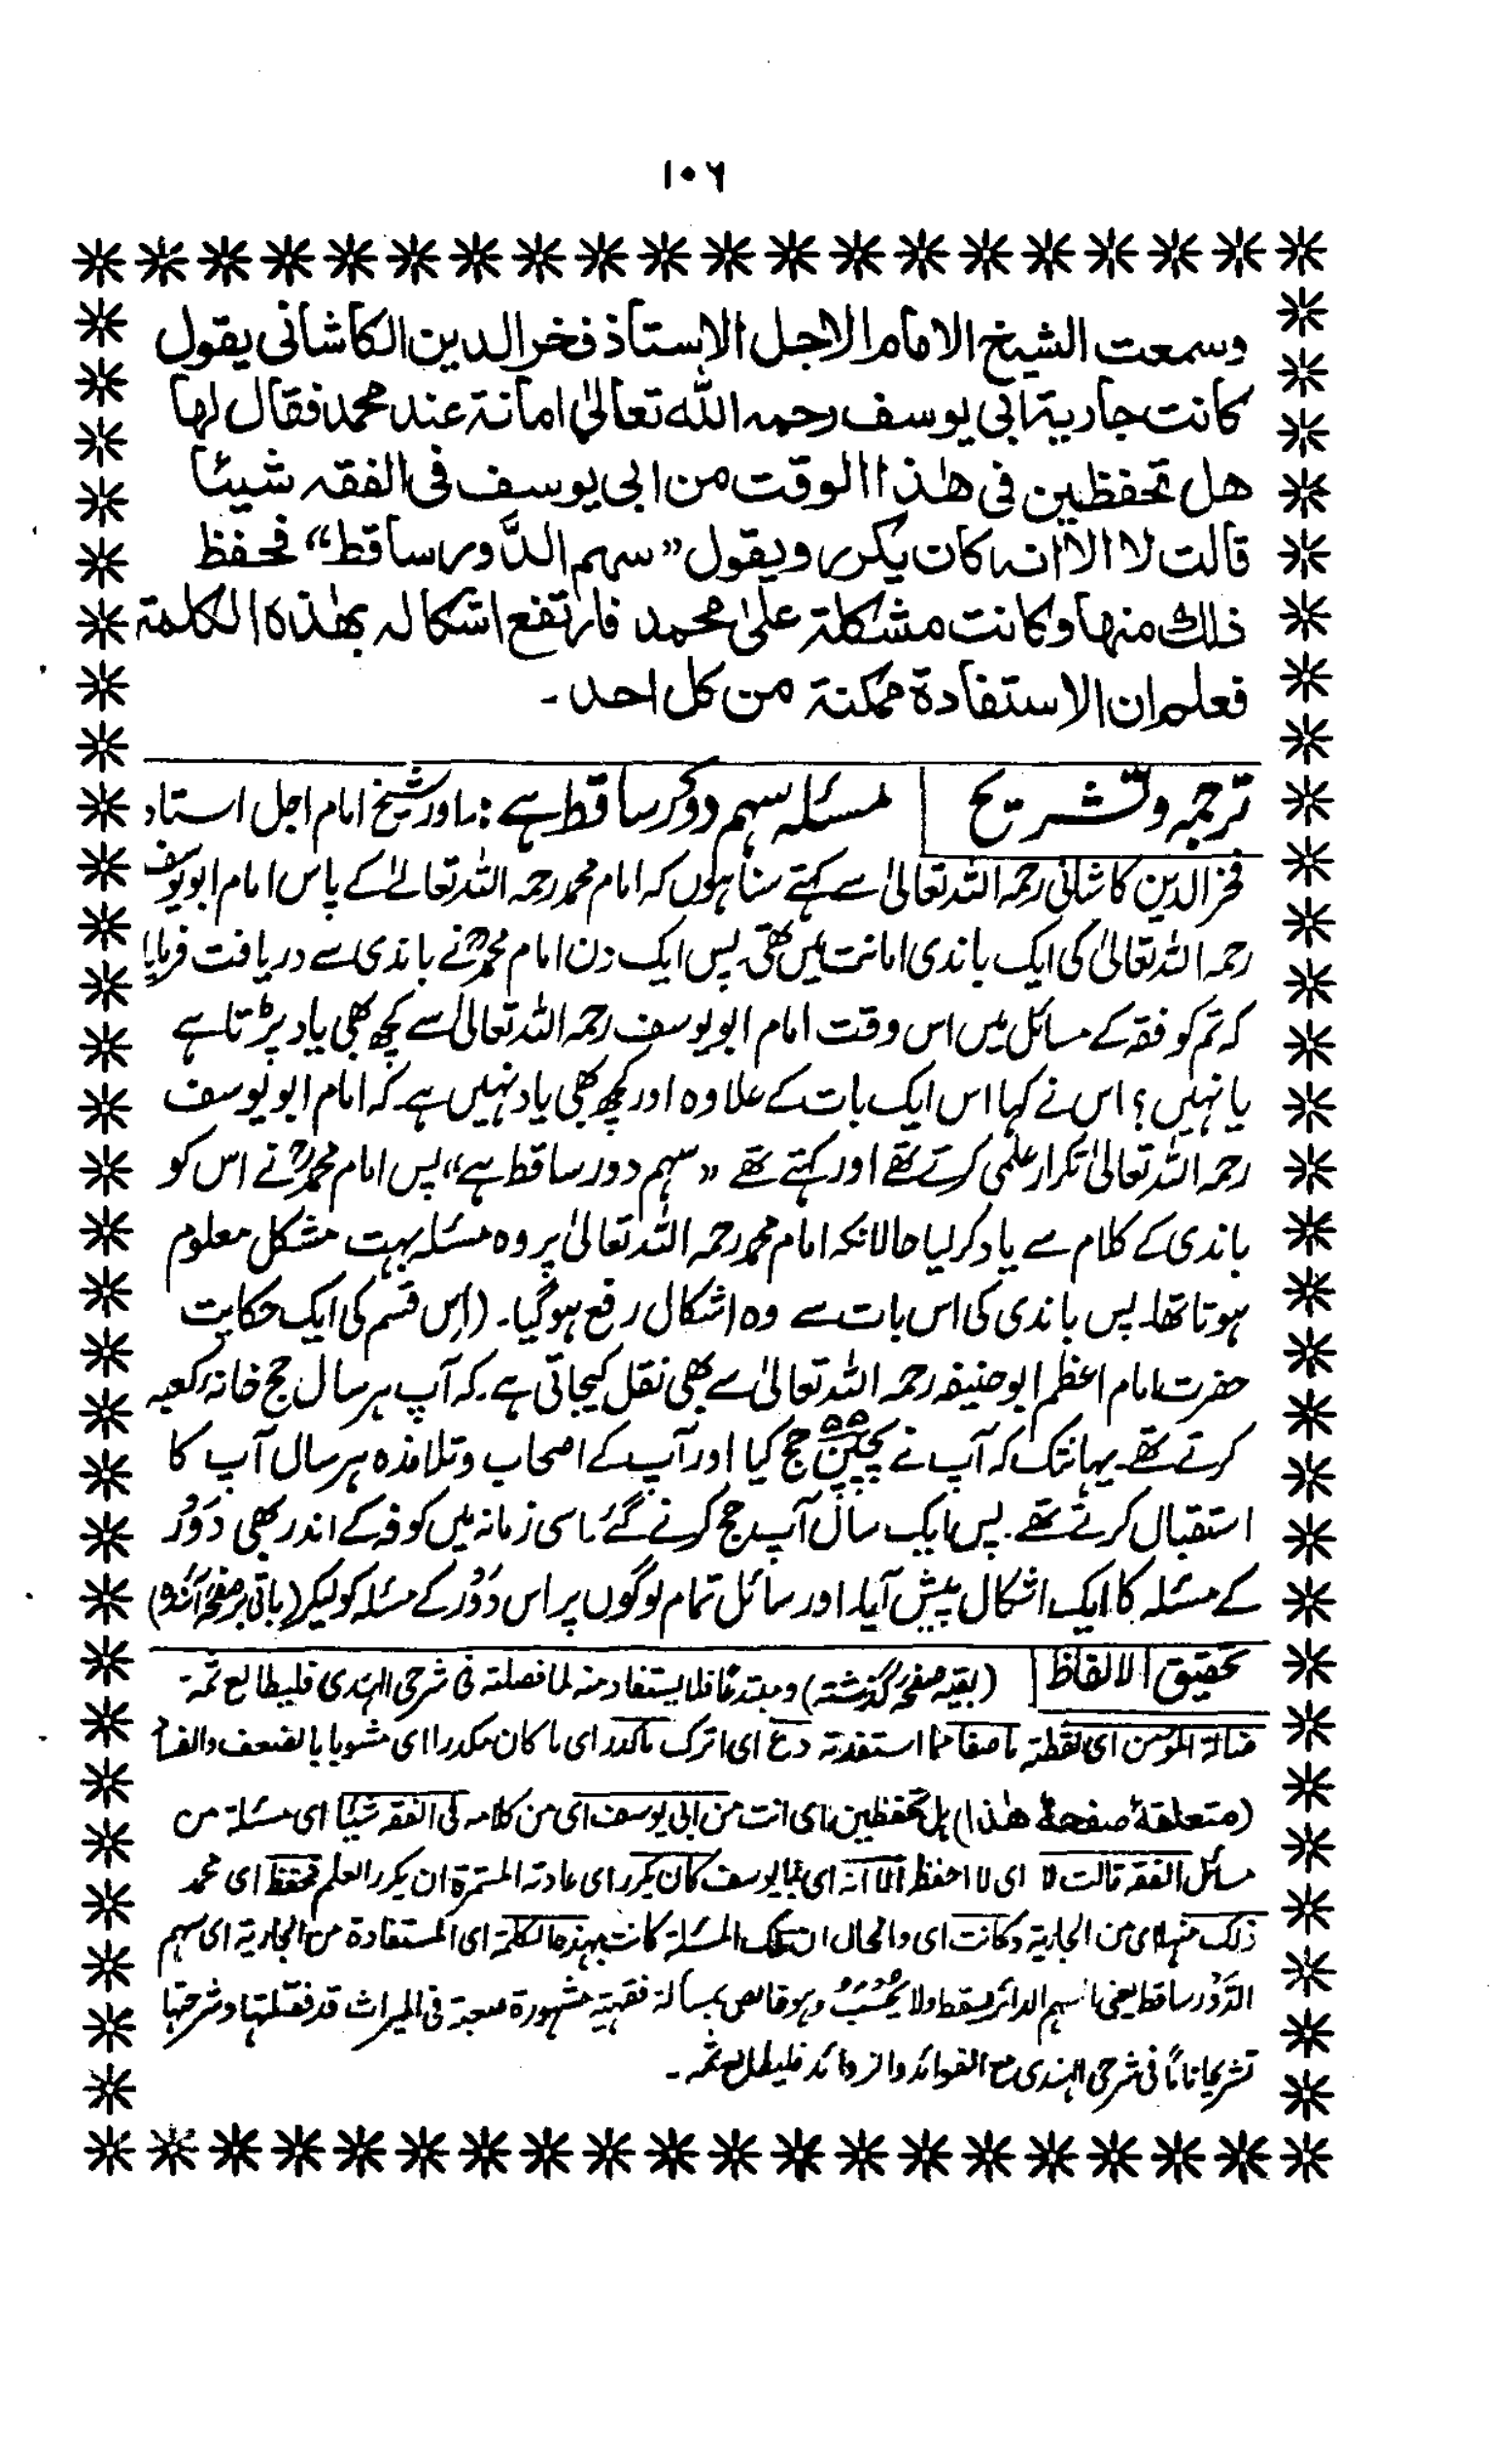 ۱۰۶
وسمعت الشیخ الامام الاجل الاستاذ فخرالدین الکاشانی یقول
کانت جاریة ابی یوسف رحمہ اللہ تعالیٰ امانة عند محمد فقال لھا
ھل تحفظین فی ھٰذا الوقت من ابی یوسف فی الفقہ شیئًا
قالت لا الا انہ کان یکرر ویقول ”سہم الدَّور ساقط“ فحفظ
ذٰلک منھا وکانت مشکلة علیٰ محمد فارتفع اشکالہ بھٰذہ الکلمة
فعلم ان الاستفادة ممکنة من کل احد۔
ترجمہ وتشریح مسئلہ سہم دوَر ساقط ہے : اور شیخ امام اجل استاد
فخرالدین کاشانی رحمہ اللہ تعالیٰ سے کہتے سنا ہوں کہ امام محمد رحمہ اللہ تعالےٰ کے پاس امام ابویوسف
رحمہ اللہ تعالیٰ کی ایک باندی امانت میں تھی۔ پس ایک دن امام محمدؒ نے باندی سے دریافت فرمایا
کہ تم کو فقہ کے مسائل میں اس وقت امام ابویوسف رحمہ اللہ تعالیٰ سے کچھ بھی یاد پڑتا ہے
یا نہیں؟ اس نے کہا اس ایک بات کے علاوہ اور کچھ بھی یاد نہیں ہے کہ امام ابویوسف
رحمہ اللہ تعالیٰ تکرار علمی کرتے تھے اور کہتے تھے ”سہم دور ساقط ہے“ پس امام محمدؒ نے اس کو
باندی کے کلام سے یاد کرلیا حالانکہ امام محمد رحمہ اللہ تعالیٰ پر وہ مسئلہ بہت مشکل معلوم
ہوتا تھا۔ پس باندی کی اس بات سے وہ اشکال رفع ہوگیا۔ (اِس قسم کی ایک حکایت
حضرت امام اعظم ابوحنیفہ رحمہ اللہ تعالیٰ سے بھی نقل کیجاتی ہے۔ کہ آپ ہر سال حج خانہ کعبہ
کرتے تھے۔ یہانتک کہ آپ نے پچپن ۵۵ حج کیا اور آپ کے اصحاب وتلامذہ ہر سال آپ کا
استقبال کرتے تھے۔ پس ایک سال آپ حج کرنے گئے۔ اسی زمانہ میں کوفہ کے اندر بھی دَوْر
کے مسئلہ کا ایک اشکال پیش آیا۔ اور سائل تمام لوگوں پر اس دَوْر کے مسئلہ کو لیکر (باقی برصفحہ آئندہ)
تحقیق الالفاظ (بقیہ صفحہ گذشتہ) ومبتدعًا فلا یستفاد منہ لما فصلتہ فی شرحی الہندی فلیطالع ثمۃ
ضالة المؤمن ای لقطتہ ما صفا مما استفدتہ دع ای اترک ماکدر ای ما کان مکدرا ای مشوبا بالضعف والفساد
(متعلقۂ صفحۂ ھٰذا) ہل تحفظین ای انت من ابی یوسف ای من کلامہ فی الفقہ شیئًا ای مسئلة من
مسائل الفقہ قالت لا ای لا احفظ الا انہ ای ابایوسف کان یکرر ای عادتہ المستمرة ان یکرر العلم فحفظ ای محمد
ذلک منہا ای من الجاریة وکانت ای والحال ان تلک المسئلة کانت بہذہ الکلمة ای المستفادة من الجاریة ای سہم
الدَّوْر ساقط یعنی ان سہم الدائر یسقط ولا یُحْسَبُ وہو بمسألة فقہیة مشہورة صعبة فی المیراث قد فصّلتہا وشرحتہا
تشریحًا تامًا فی شرحی الہندی مع الفوائد والزوائد فلیطالع ثمہ۔